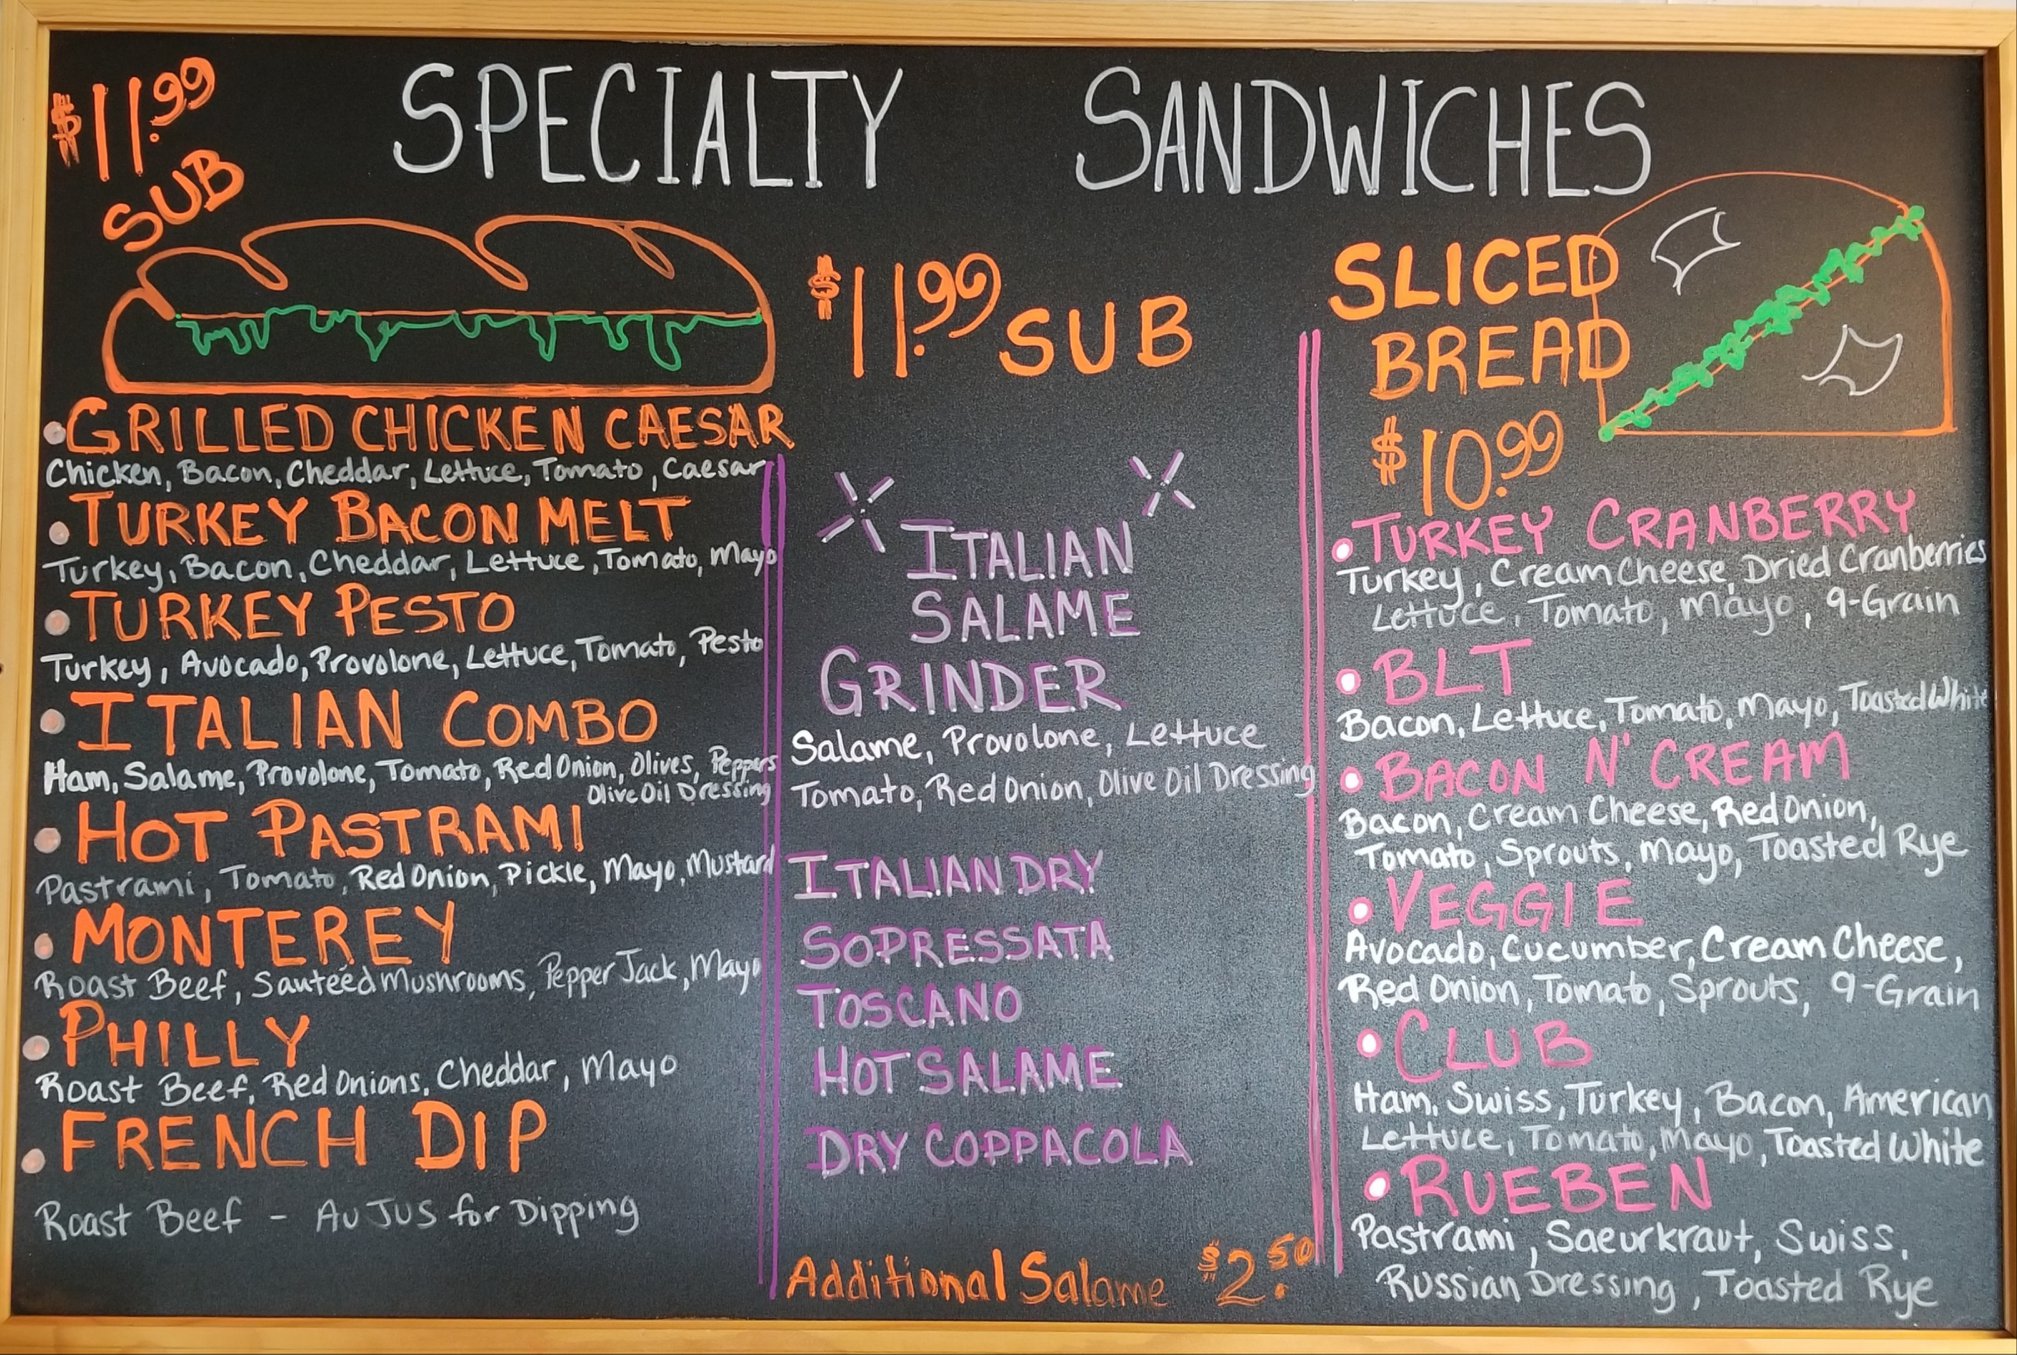 SPECIALTY SANDWICHES
$11.99
SUB
• GRILLED CHICKEN CAESAR
Chicken, Bacon, Cheddar, Lettuce, Tomato, Caesar
• TURKEY BACON MELT
Turkey, Bacon, Cheddar, Lettuce, Tomato, Mayo
• TURKEY PESTO
Turkey, Avocado, Provolone, Lettuce, Tomato, Pesto
• ITALIAN COMBO
Ham, Salame, Provolone, Tomato, Red Onion, Olives, Peppers
Olive Oil Dressing
• HOT PASTRAMI
Pastrami, Tomato, Red Onion, Pickle, Mayo, Mustard
• MONTEREY
Roast Beef, Sautéed Mushrooms, Pepper Jack, Mayo
• PHILLY
Roast Beef, Red Onions, Cheddar, Mayo
• FRENCH DIP
Roast Beef - Au Jus for Dipping
$11.99 SUB
ITALIAN
SALAME
GRINDER
Salame, Provolone, Lettuce
Tomato, Red Onion, Olive Oil Dressing
ITALIAN DRY
SOPRESSATA
TOSCANO
HOT SALAME
DRY COPPACOLA
Additional Salame $2.50
SLICED
BREAD
$10.99
• TURKEY CRANBERRY
Turkey, Cream Cheese, Dried Cranberries
Lettuce, Tomato, Mayo, 9-Grain
• BLT
Bacon, Lettuce, Tomato, Mayo, Toasted White
• BACON N' CREAM
Bacon, Cream Cheese, Red Onion,
Tomato, Sprouts, Mayo, Toasted Rye
• VEGGIE
Avocado, Cucumber, Cream Cheese,
Red Onion, Tomato, Sprouts, 9-Grain
• CLUB
Ham, Swiss, Turkey, Bacon, American
Lettuce, Tomato, Mayo, Toasted White
• RUEBEN
Pastrami, Saeurkraut, Swiss,
Russian Dressing, Toasted Rye